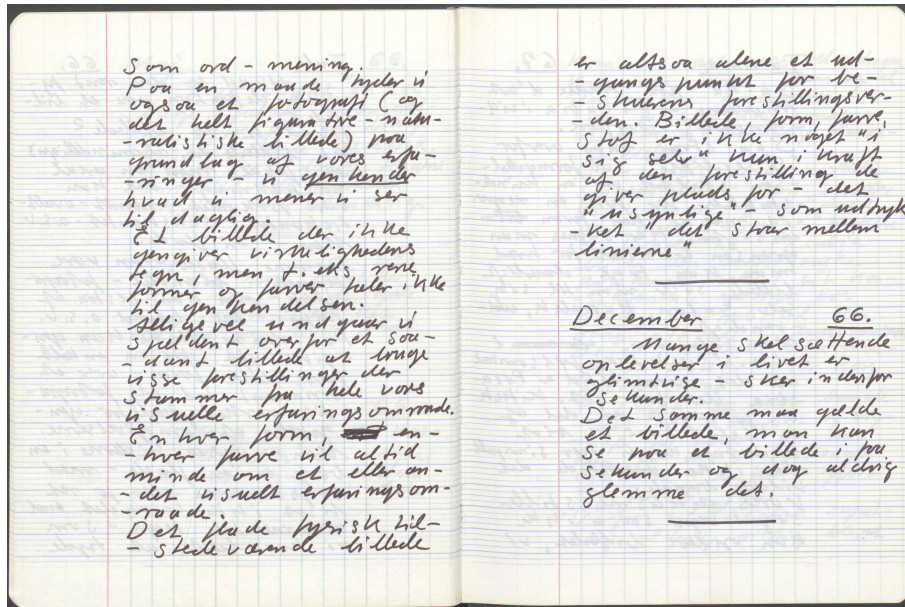 Som ord - mening.
Paa en maade tyder vi
ogsaa et fotografi (og
det helt figurative - natu-
-ralistiske billede) paa
grundlag af vores erfa-
-ringer - vi genkender
hvad vi mener vi ser
til daglig.
Et billede der ikke
gengiver virkelighedens
tegn, men f. eks. rene
former og farver taler ikke
til genkendelsen.
Alligevel undgaar vi
sjældent overfor et saa-
-dant billede at bruge
visse forestillinger der
stammer fra hele vors
visuelle erfaringsomraade.
Enhver form, en-
-hver farve vil altid
minde om et eller an-
-det visuelt erfaringsom-
-raade.
Det flade fysisk til-
-stedeværende billede
er altsaa alene et ud-
-gangspunkt for be-
-skuerens forestillingsver-
-den. Billede, form, farve,
stof er ikke noget "i
sig selv" kun i kraft
af den forestilling de
giver plads for - det
"usynlige" - som udtryk-
-ket "det staar mellem
linierne"
December 66.
Mange skelsættende
oplevelser i livet er
glimtvise - sker indenfor
sekunder.
Det samme maa gælde
et billede, man kan
se paa et billede i faa
sekunder og dog aldrig
glemme det.